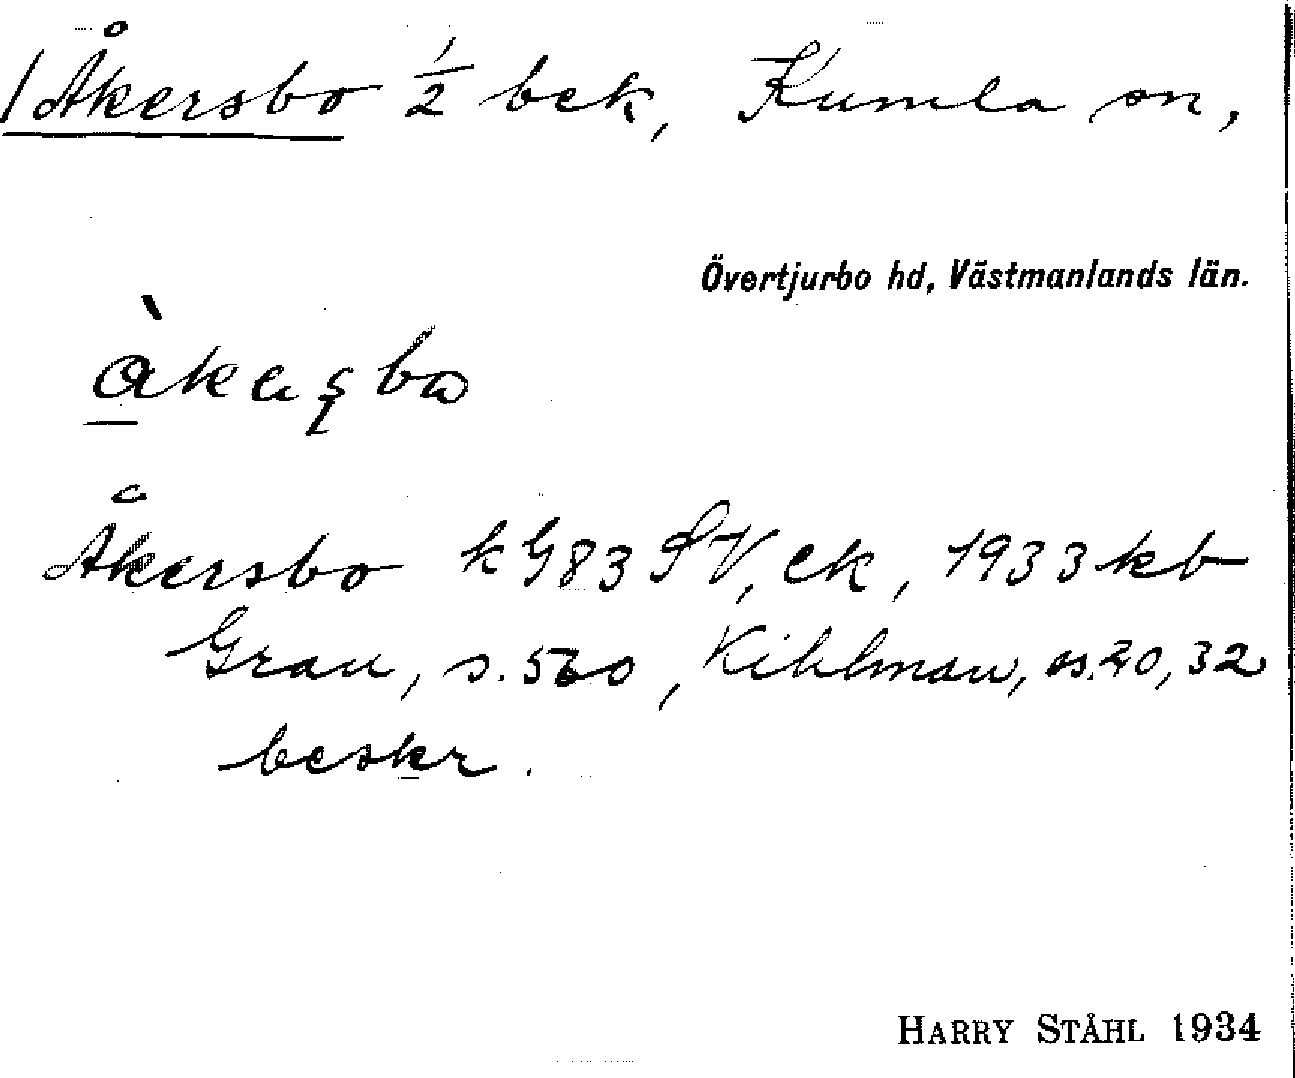 /Åkersbo ½ bek, Kumla sn,
Övertjurbo hd, Västmanlands län.
Åkersbo k G83 SV, ek, 1933 kb
Grau, s. 560, Kihlman, ss. 20, 32
beskr.
HARRY STÅHL 1934